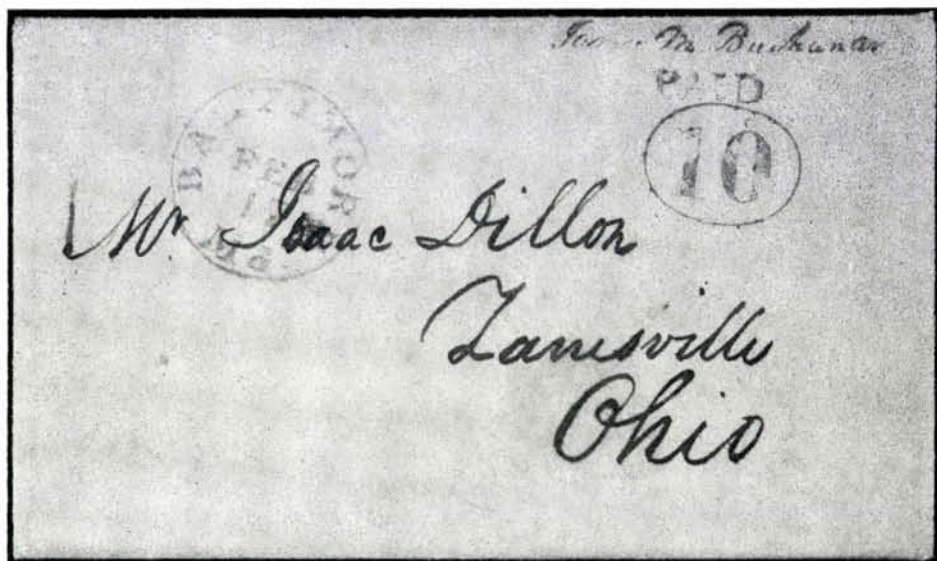 James M. Buchanan
PAID
10
BALTIMORE
FEB
Mr Isaac Dillon
Zanesville
Ohio